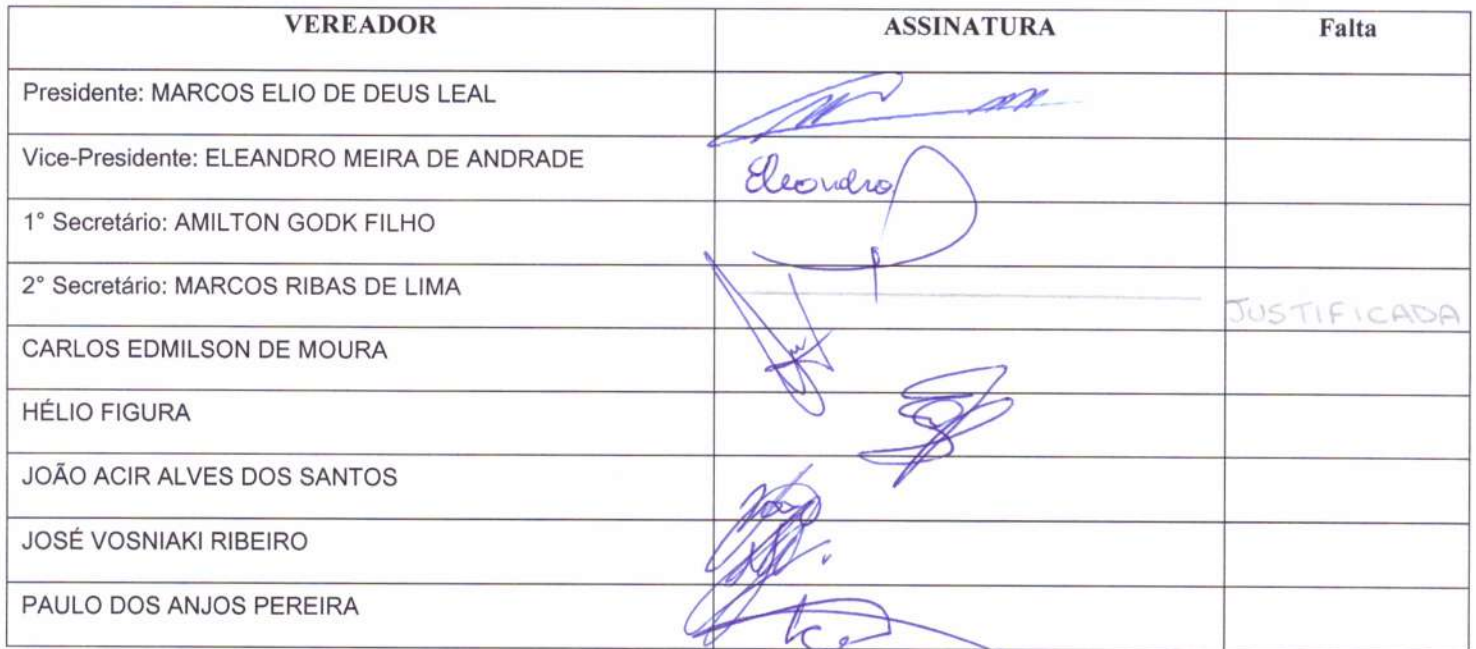 VEREADOR ASSINATURA Falta
Presidente: MARCOS ELIO DE DEUS LEAL
Vice-Presidente: ELEANDRO MEIRA DE ANDRADE Eleandro
1° Secretário: AMILTON GODK FILHO
2° Secretário: MARCOS RIBAS DE LIMA JUSTIFICADA
CARLOS EDMILSON DE MOURA
HÉLIO FIGURA
JOÃO ACIR ALVES DOS SANTOS
JOSÉ VOSNIAKI RIBEIRO
PAULO DOS ANJOS PEREIRA